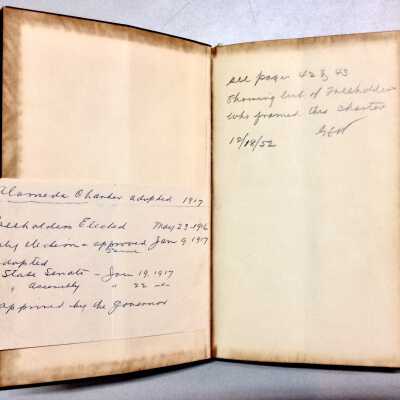 Alameda Charter adopted 1917
Freeholders Elected May 23-1916
City Election - approved Jan 9 1917
Same
adopted
State Senate - Jan 19, 1917
" Assembly " 22 -"-
approved by the Governor
see pages 42 & 43
Showing list of Freeholders
who framed this charter
12/18/52